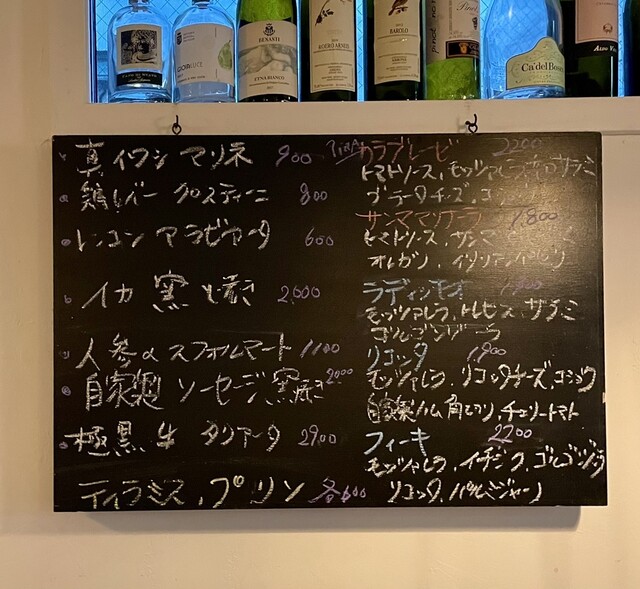 BENANTI
ETNA BIANCO
ROERO ARNEIS
BAROLO
pinot nero
Ca'del Bosco
真イワシ マリネ 900
鶏レバー クロスティーニ 800
レンコン アラビアータ 600
イカ 窯
2,000
人参のスフォルマート 1100
自家製 ソーセージ 窯焼き 2000
極黒牛 タリアータ 2900
ティラミス、プリン 各600
カラブレーゼ 2200
トマトソース、モッツァレラ サラミ
ゴーダチーズ、
サンマ 1,800
トマトソース、サンマ
オレガノ、イタリアンパセリ
ラディッキオ
モッツァレラ、トレビス、サラミ
ゴルゴンゾーラ
リコッタ 1,900
モッツァレラ、リコッタチーズ、コショウ
自家製ハム角切り、チェリートマト
フィーキ 2200
モッツァレラ、イチジク、ゴルゴンゾーラ
リコッタ、パルミジャーノ